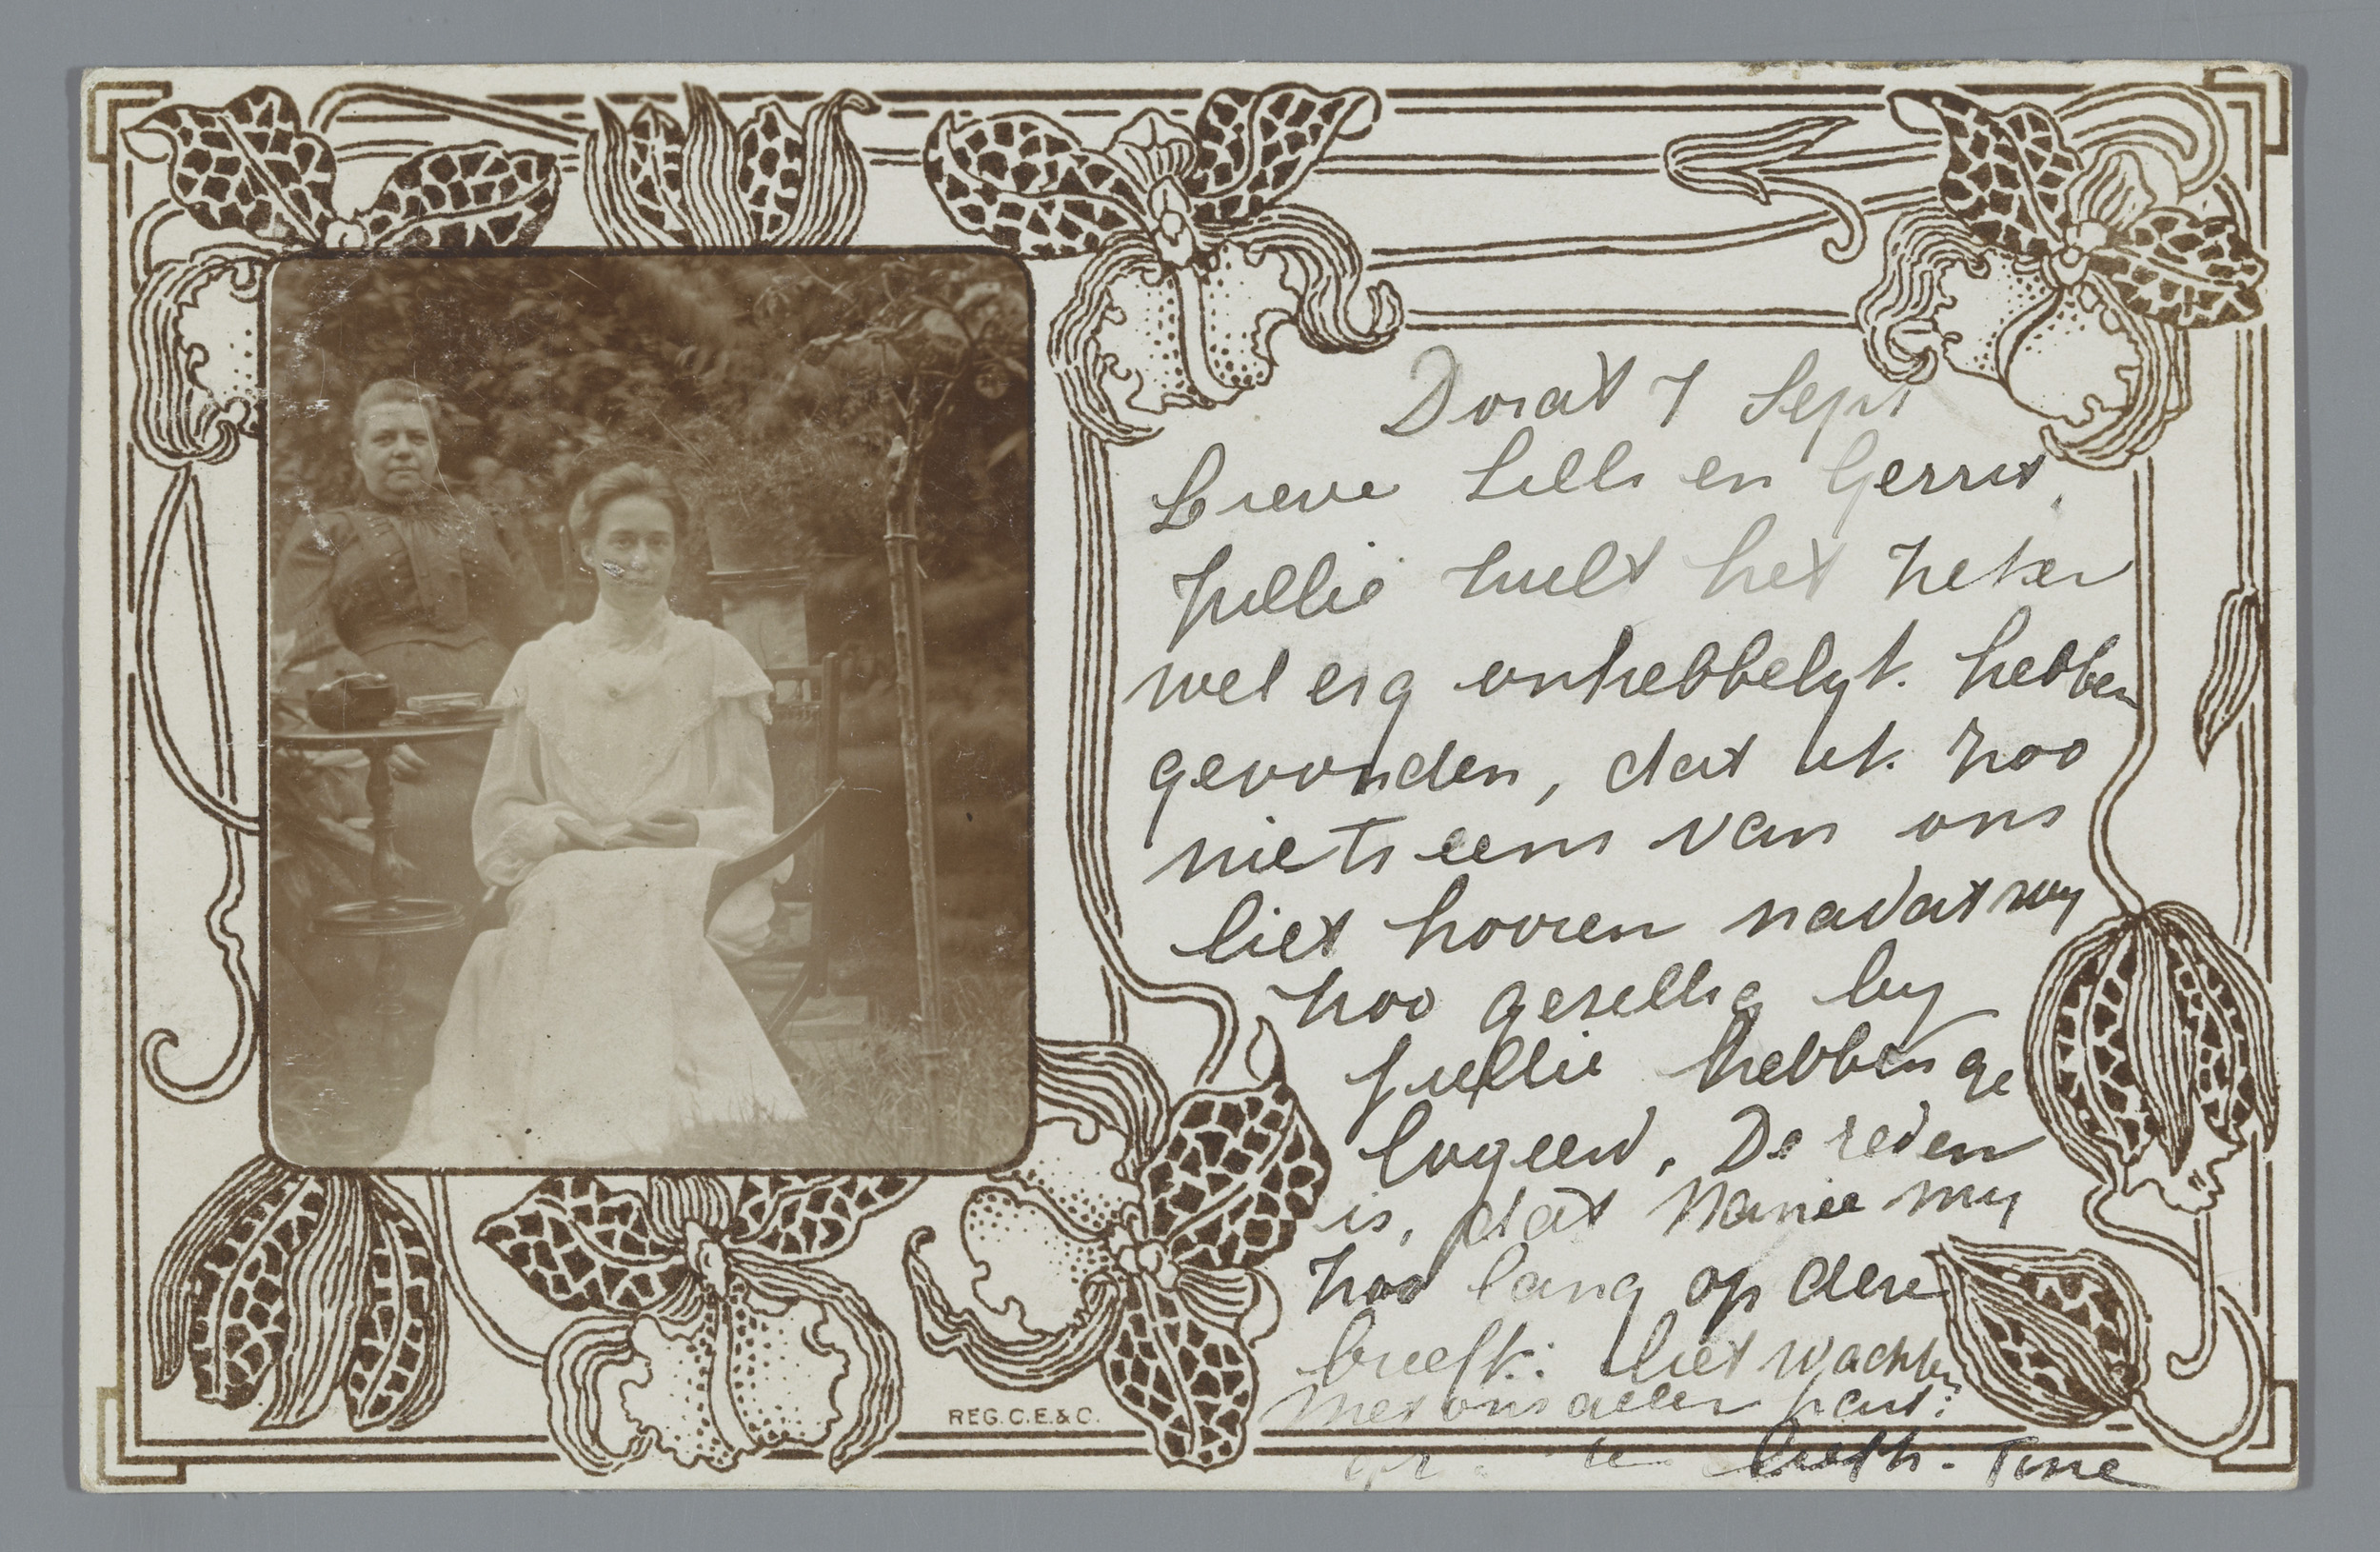 7 Sept
Lieve Lilli en Gerrit,
Jullie zult het zeker
wel erg onhebbelyk hebben
gevonden, dat ik zoo
niets eens van ons
liet hooren nadat wy
zoo gezellig by
jullie hebben ge
logeerd. De reden
is, dat my
zoo lang op deze
briefk: liet wachten
Met ons aller hart:
gr. Tine
REG. C. E. & C.